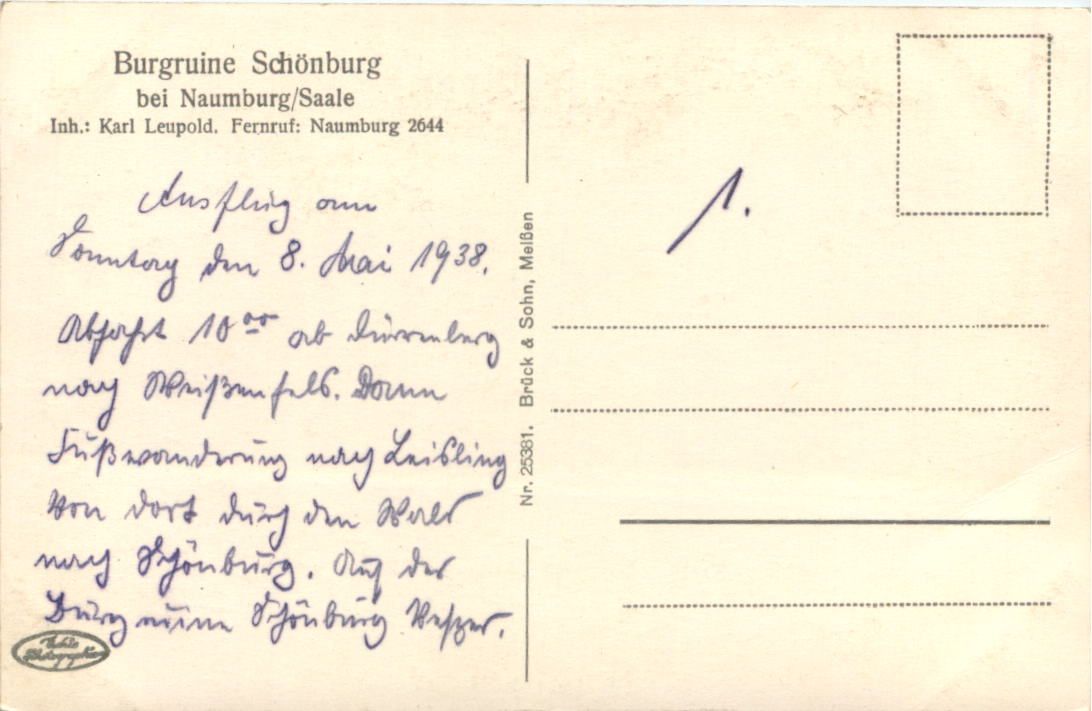 Burgruine Schönburg
bei Naumburg/Saale
Inh.: Karl Leupold. Fernruf: Naumburg 2644
Ausflug am
Sonntag den 8. Mai 1938.
Abfahrt 10⁰⁰ ab Dürrenberg
nach Weißenfels. Dann
Fußwanderung nach Leisling
Von dort durch den Wald
nach Schönburg. Auf der
Burgruine Schönburg Vesper.
Echte
Photographie
Nr. 25381. Brück & Sohn, Meißen
1.